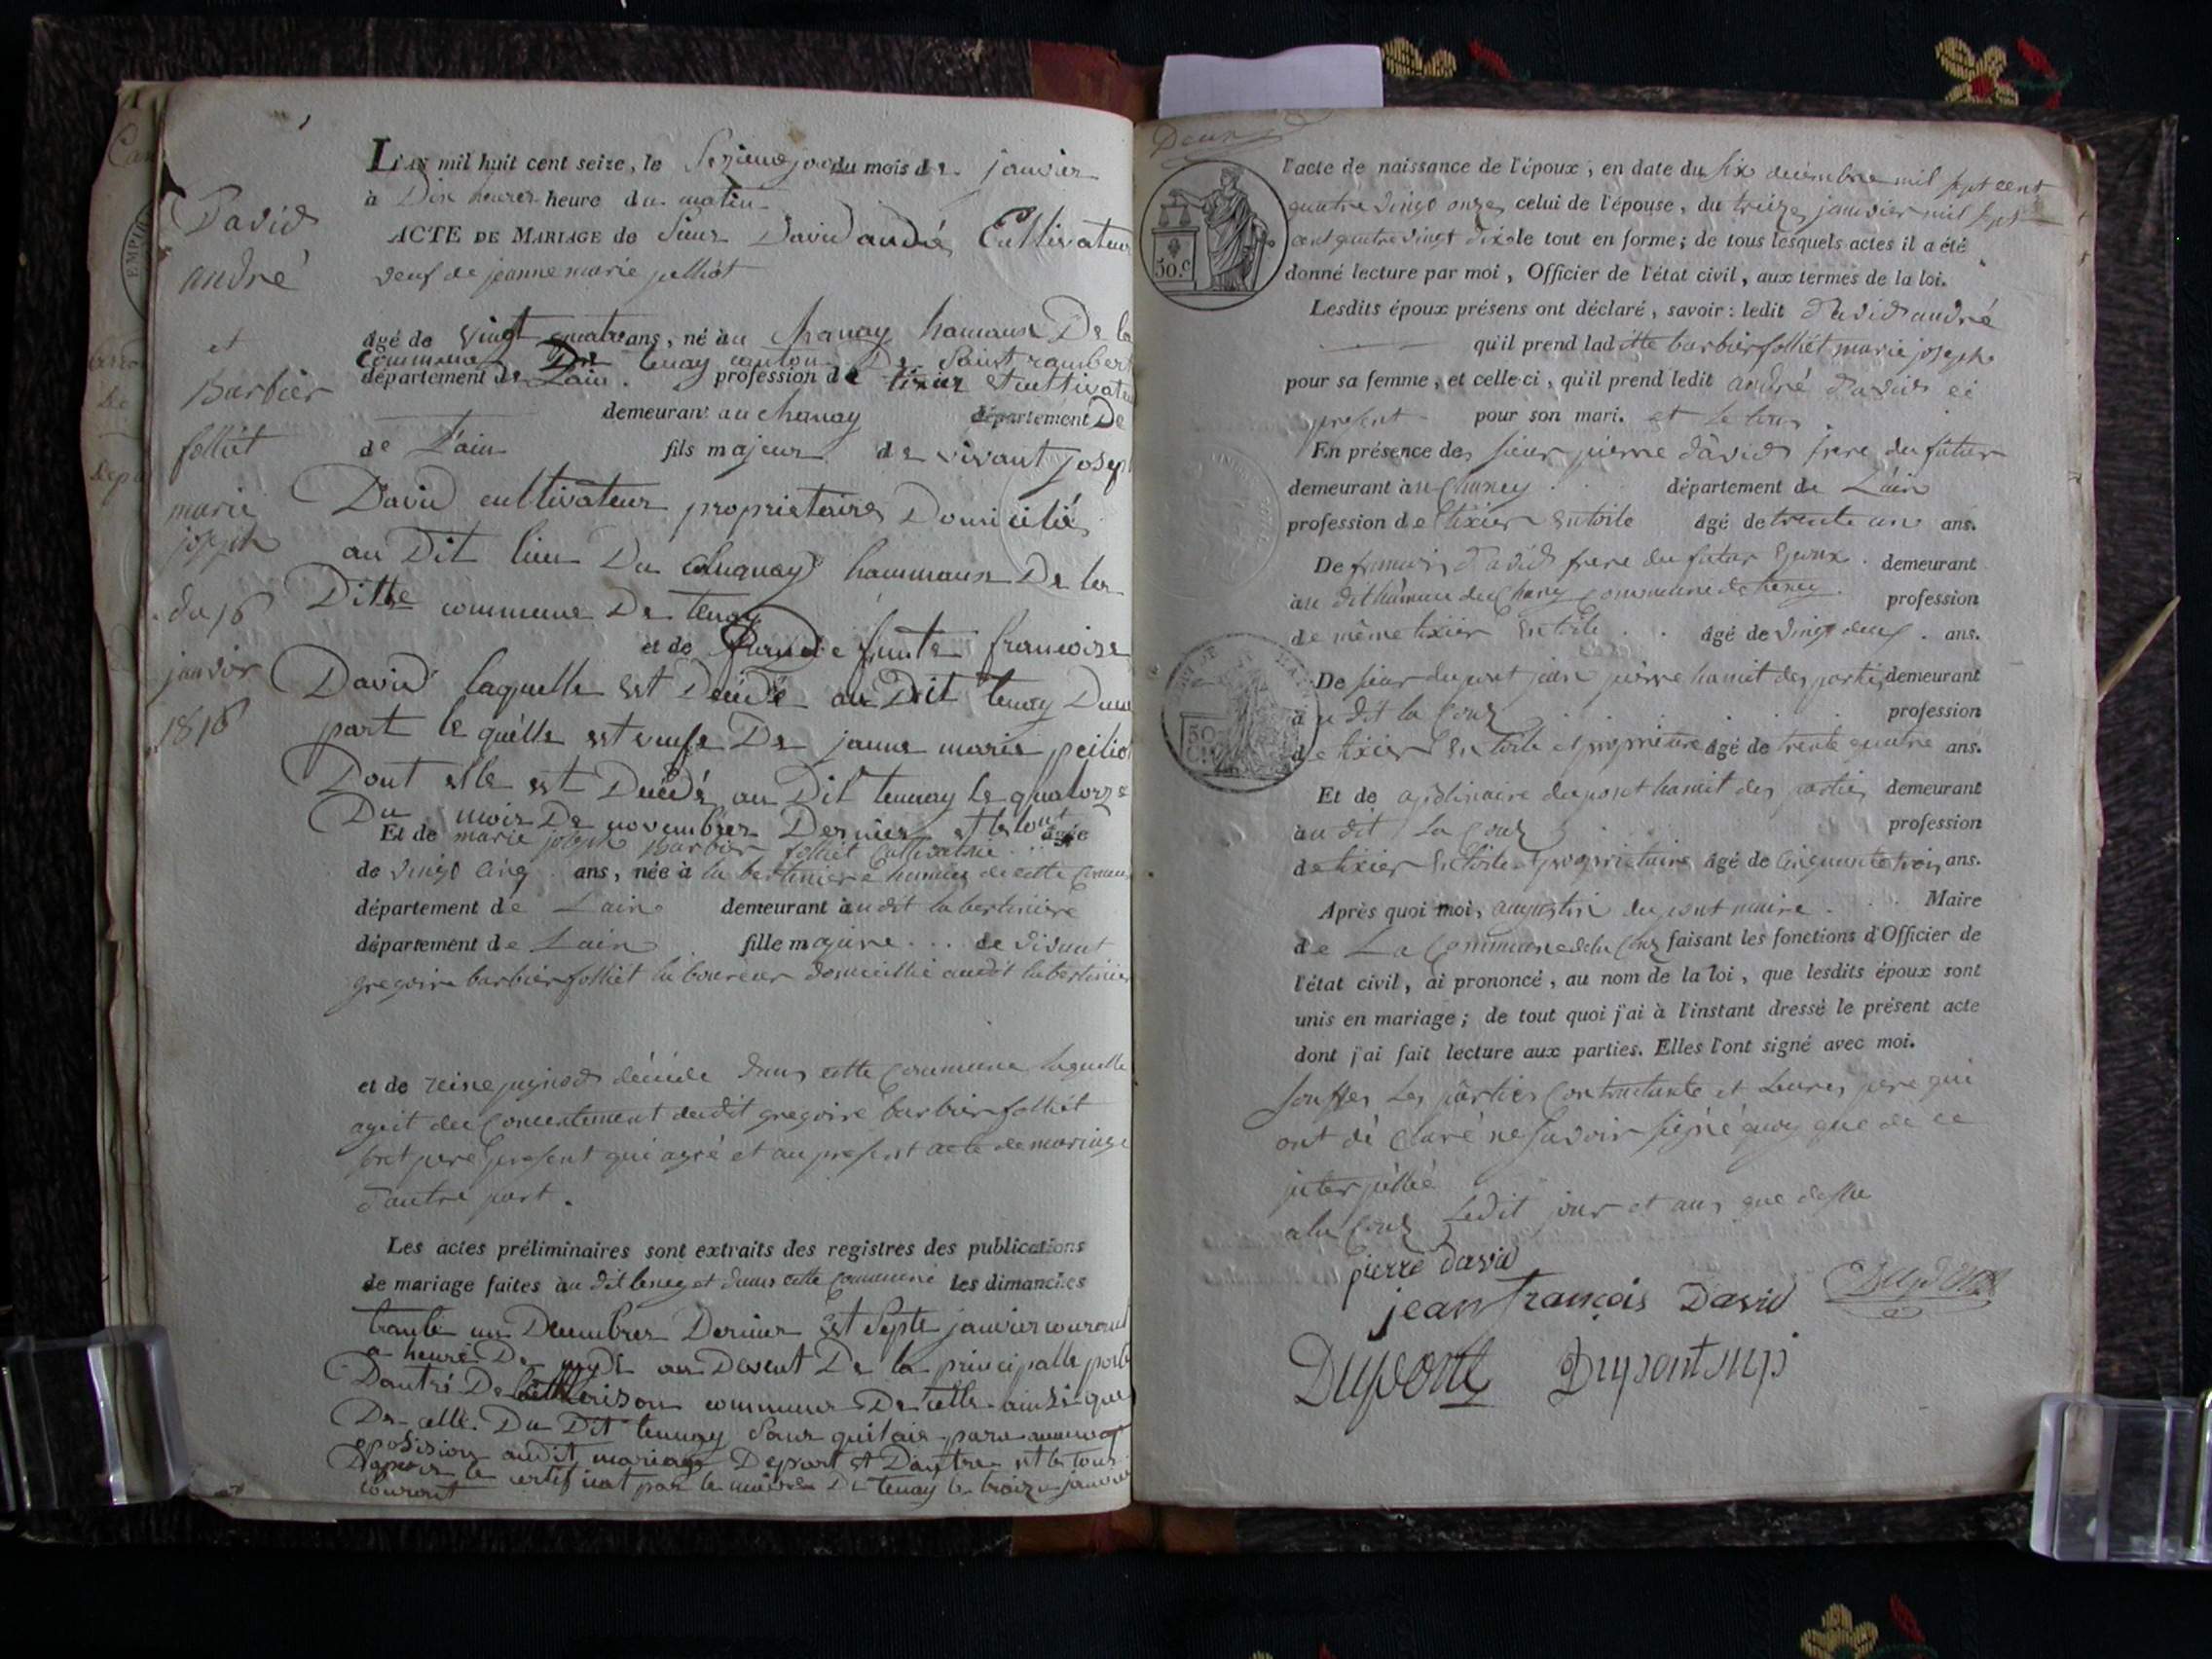 David
andré
et
Barbier
folliet
marie
joseph
du 16
janvier
1816
L'AN mil huit cent seize, le Sezieme jour du mois de janvier
à Dix heures heure du matin
ACTE DE MARIAGE de Sieur David andré Cultivateur
veuf de jeanne marie
âgé de vingt quatre ans, né au Chanay hamaux De la
Commune De tenay canton De Saint rambert
département de Lain. profession de tixier et cultivateur
demeurant au chanay département De
de Lain fils majeur de vivant joseph
David cultivateur proprietaires Domicilié
au Dit lieu Du Chanay hammaux De la
Ditte commune De tenay
et de francoise
David laquelle est Décédé au Dit tenay Dune
part lequelle est veufe De janne marie
Dont elle est Décédé au Dit tenay le quatorze
Du mois De novembre Dernier et le tout
Et de marie joseph Barbier folliet Cultivatrice âgée
de vingt cinq ans, née à la bertiniere hameau de cette Commune
département de Lain demeurant audit la bertiniere
département de Lain fille majeure de vivant
gregoire barbier folliet laboureur domicillié audit la bertiniere
et de reine décédée dans cette Commune laquelle
agit du Concentement dudit gregoire barbier folliet
pere present qui agré et au present acte de mariage
d'autre part.
Les actes préliminaires sont extraits des registres des publications
de mariage faites au dit tenay et dans cette Commune les dimanches
trante un Decembre Dernier et Septe janvier courant
a heure De midi au Devent De la principalle porte
Dautré De la Maison commune De celle ainsi que
De celle Du Dit tenay Sans quil aie paru aucune
oposision audit mariage Depart et Dautre et le tous
Dapres le certificat par le maire De tenay le traize janvier
courant
Deux
l'acte de naissance de l'époux, en date du six décembre mil sept cent
quatre vingt onze, celui de l'épouse, du treize janvier mil sept
cent quatre vingt dix le tout en forme; de tous lesquels actes il a été
50.c
donné lecture par moi, Officier de l'état civil, aux termes de la loi.
Lesdits époux présens ont déclaré, savoir: ledit David andré
qu'il prend laditte barbier folliét marie joseph
pour sa femme, et celle-ci, qu'il prend ledit andré David ci
present pour son mari. et le tous
En présence de sieur pierre david frere du futur
demeurant au Chaney département de Lain
profession de tixier en toile âgé de trente un ans.
De francois David frere du futur Epoux demeurant
au dit hameau du Chaney Commune de teney profession
de même tixier en toile âgé de vingt deux ans.
De sieur dupont jean pierre hamit des partie demeurant
au dit la Couz profession
50
de tixier en toile et proprietaire âgé de trente quatre ans.
Et de apolinaire dupont hamit des parties demeurant
au dit La Couz profession
de tixier en toile et proprietaire âgé de cinquante trois ans.
Après quoi moi, augustin dupont maire Maire
de La Commune de la Couz faisant les fonctions d'Officier de
l'état civil, ai prononcé, au nom de la loi, que lesdits époux sont
unis en mariage; de tout quoi j'ai à l'instant dressé le présent acte
dont j'ai fait lecture aux parties. Elles l'ont signé avec moi.
souffes Les parties Contractante et Leures pere qui
ont dé claré ne savoir signé quoy que de ce
juterpéllié
a la Couz Ledit jour et ans que dessu
pierre david
jean françois David
Dupont Dupont